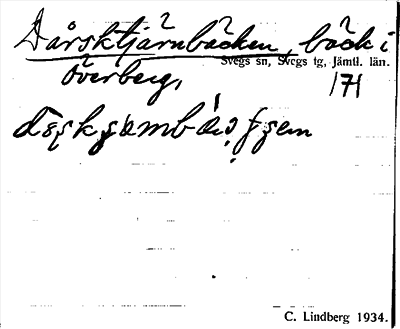 Dårsktjärnbäcken, bäck i
Svegs sn, Svegs tg, Jämtl. län.
Överberg, 171
C. Lindberg 1934.